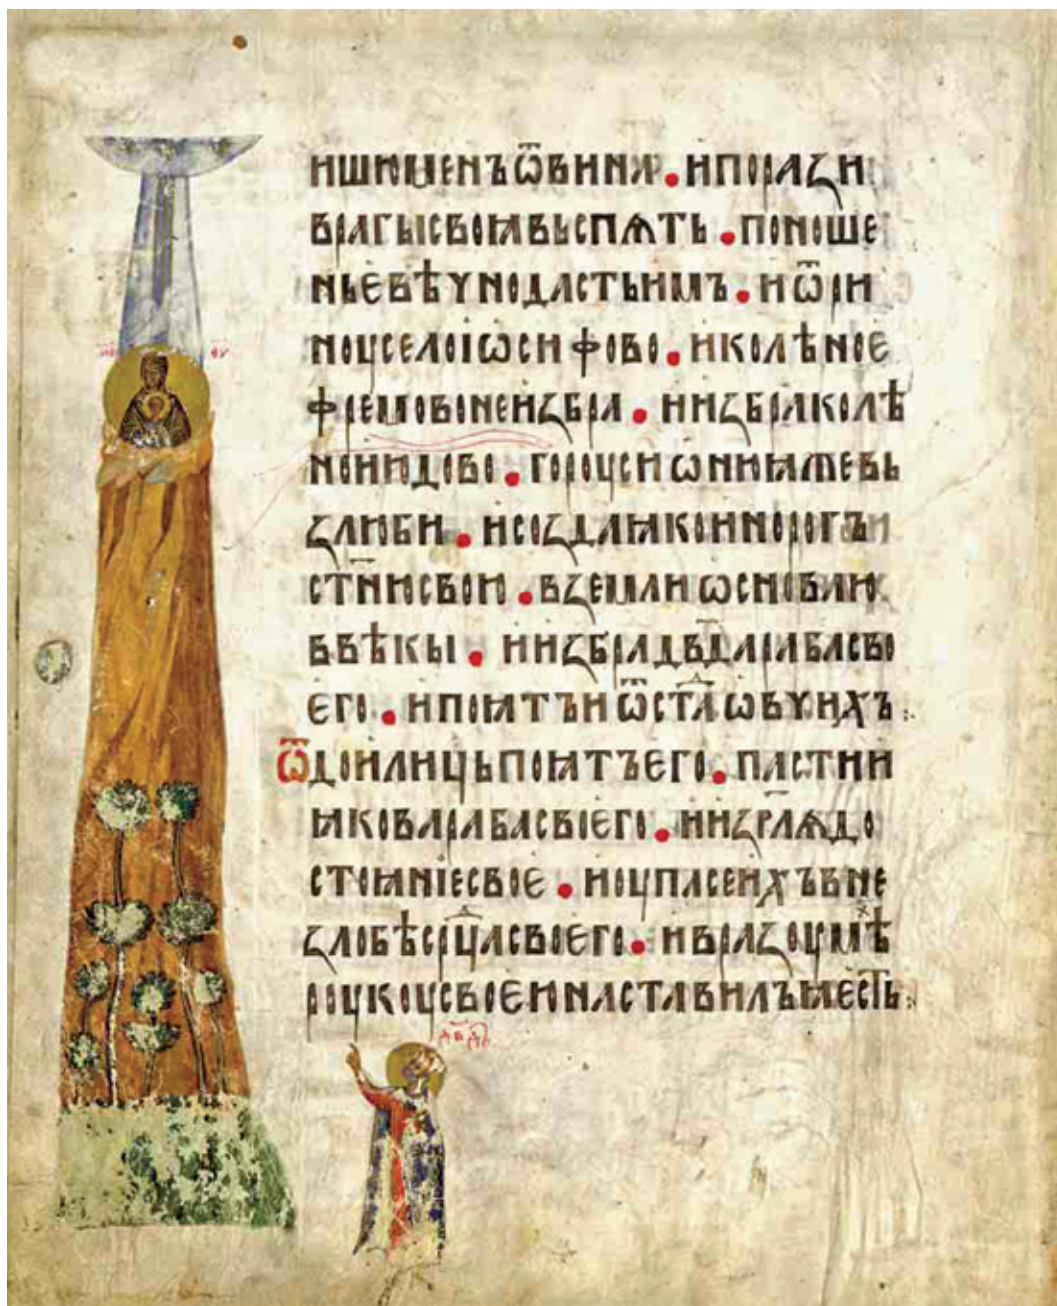 ишюменъѿвинѧ • ипорази
врагысвоꙗвьспѧть • поноше
ньевѣчнодастьимъ • иѿри
ноуселоіѡсифово • иколѣноє
фремовонеизбра • иизбраколѣ
нонюдово • гороусиѡнюꙗжевь
злюби • исоздаꙗкоинорогъ
ст҃ниисвои • вземлиѡснованю
ввѣкы • иизбрадв҃дарабасво
єго • ипоꙗтъиѿстадъѡвчихъ
ѿдоилиць поꙗтъєго • пастии
ꙗковарабасвоієго • иизрлѧдо
стоꙗнієсвоє • иоупасеихъвне
злобѣср҃цасвоєго • ивразоумѣ
роукоусвоєюнаставилъꙗєсть
мр҃ ѳу
дв҃дъ